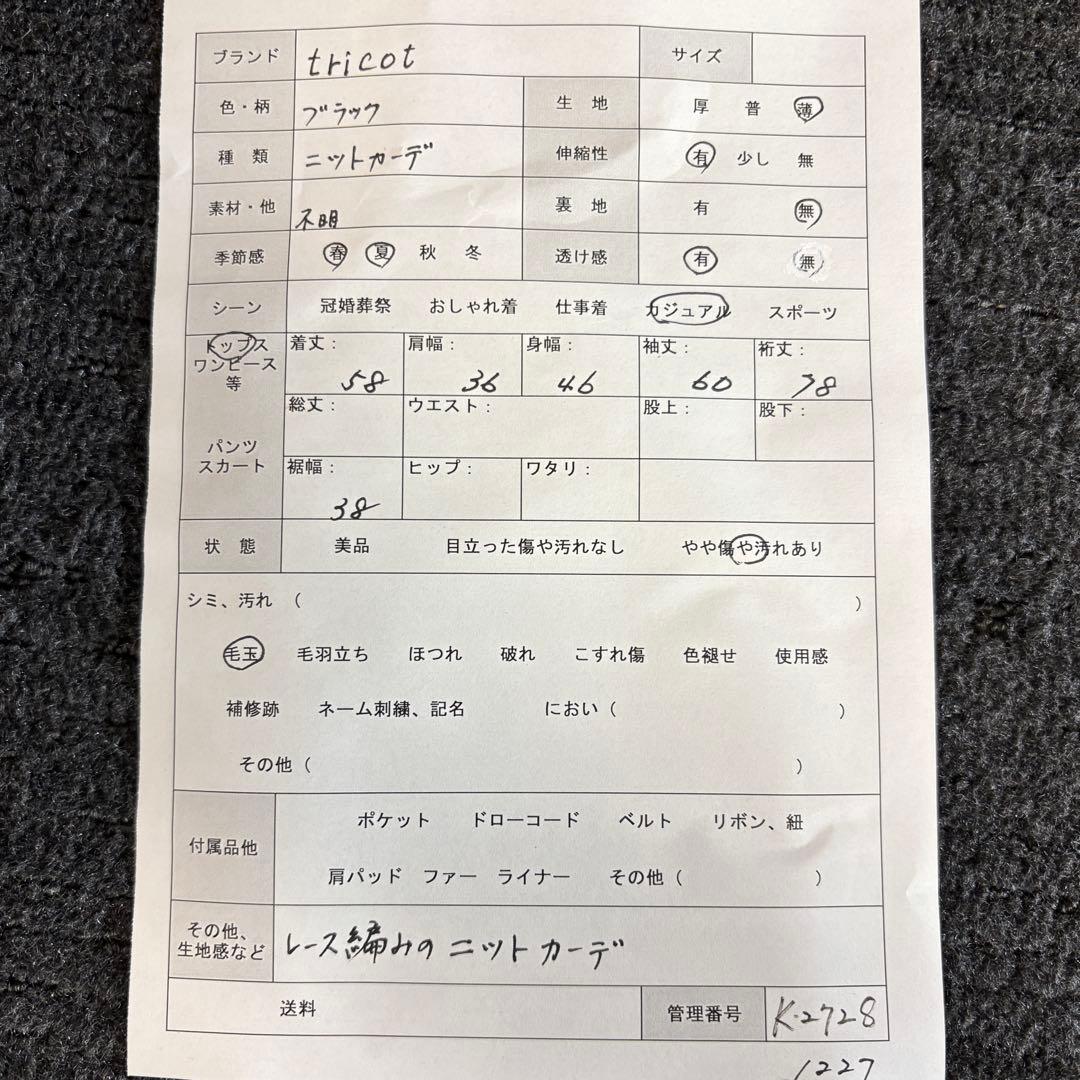 ブランド tricot サイズ
色・柄 ブラック 生 地 厚 普 薄
種 類 ニットカーデ 伸縮性 有 少し 無
素材・他 不明 裏 地 有 無
季節感 春 夏 秋 冬 透け感 有 無
シーン 冠婚葬祭 おしゃれ着 仕事着 カジュアル スポーツ
トップス 着丈： 肩幅： 身幅： 袖丈： 裄丈：
ワンピース
等 58 36 46 60 78
総丈： ウエスト： 股上： 股下：
パンツ
スカート 裾幅： ヒップ： ワタリ：
38
状 態 美品 目立った傷や汚れなし やや傷や汚れあり
シミ、汚れ （ ）
毛玉 毛羽立ち ほつれ 破れ こすれ傷 色褪せ 使用感
補修跡 ネーム刺繍、記名 におい（ ）
その他（ ）
付属品他 ポケット ドローコード ベルト リボン、紐
肩パッド ファー ライナー その他（ ）
その他、
生地感など レース編みのニットカーデ
送料 管理番号 K-2728
1227